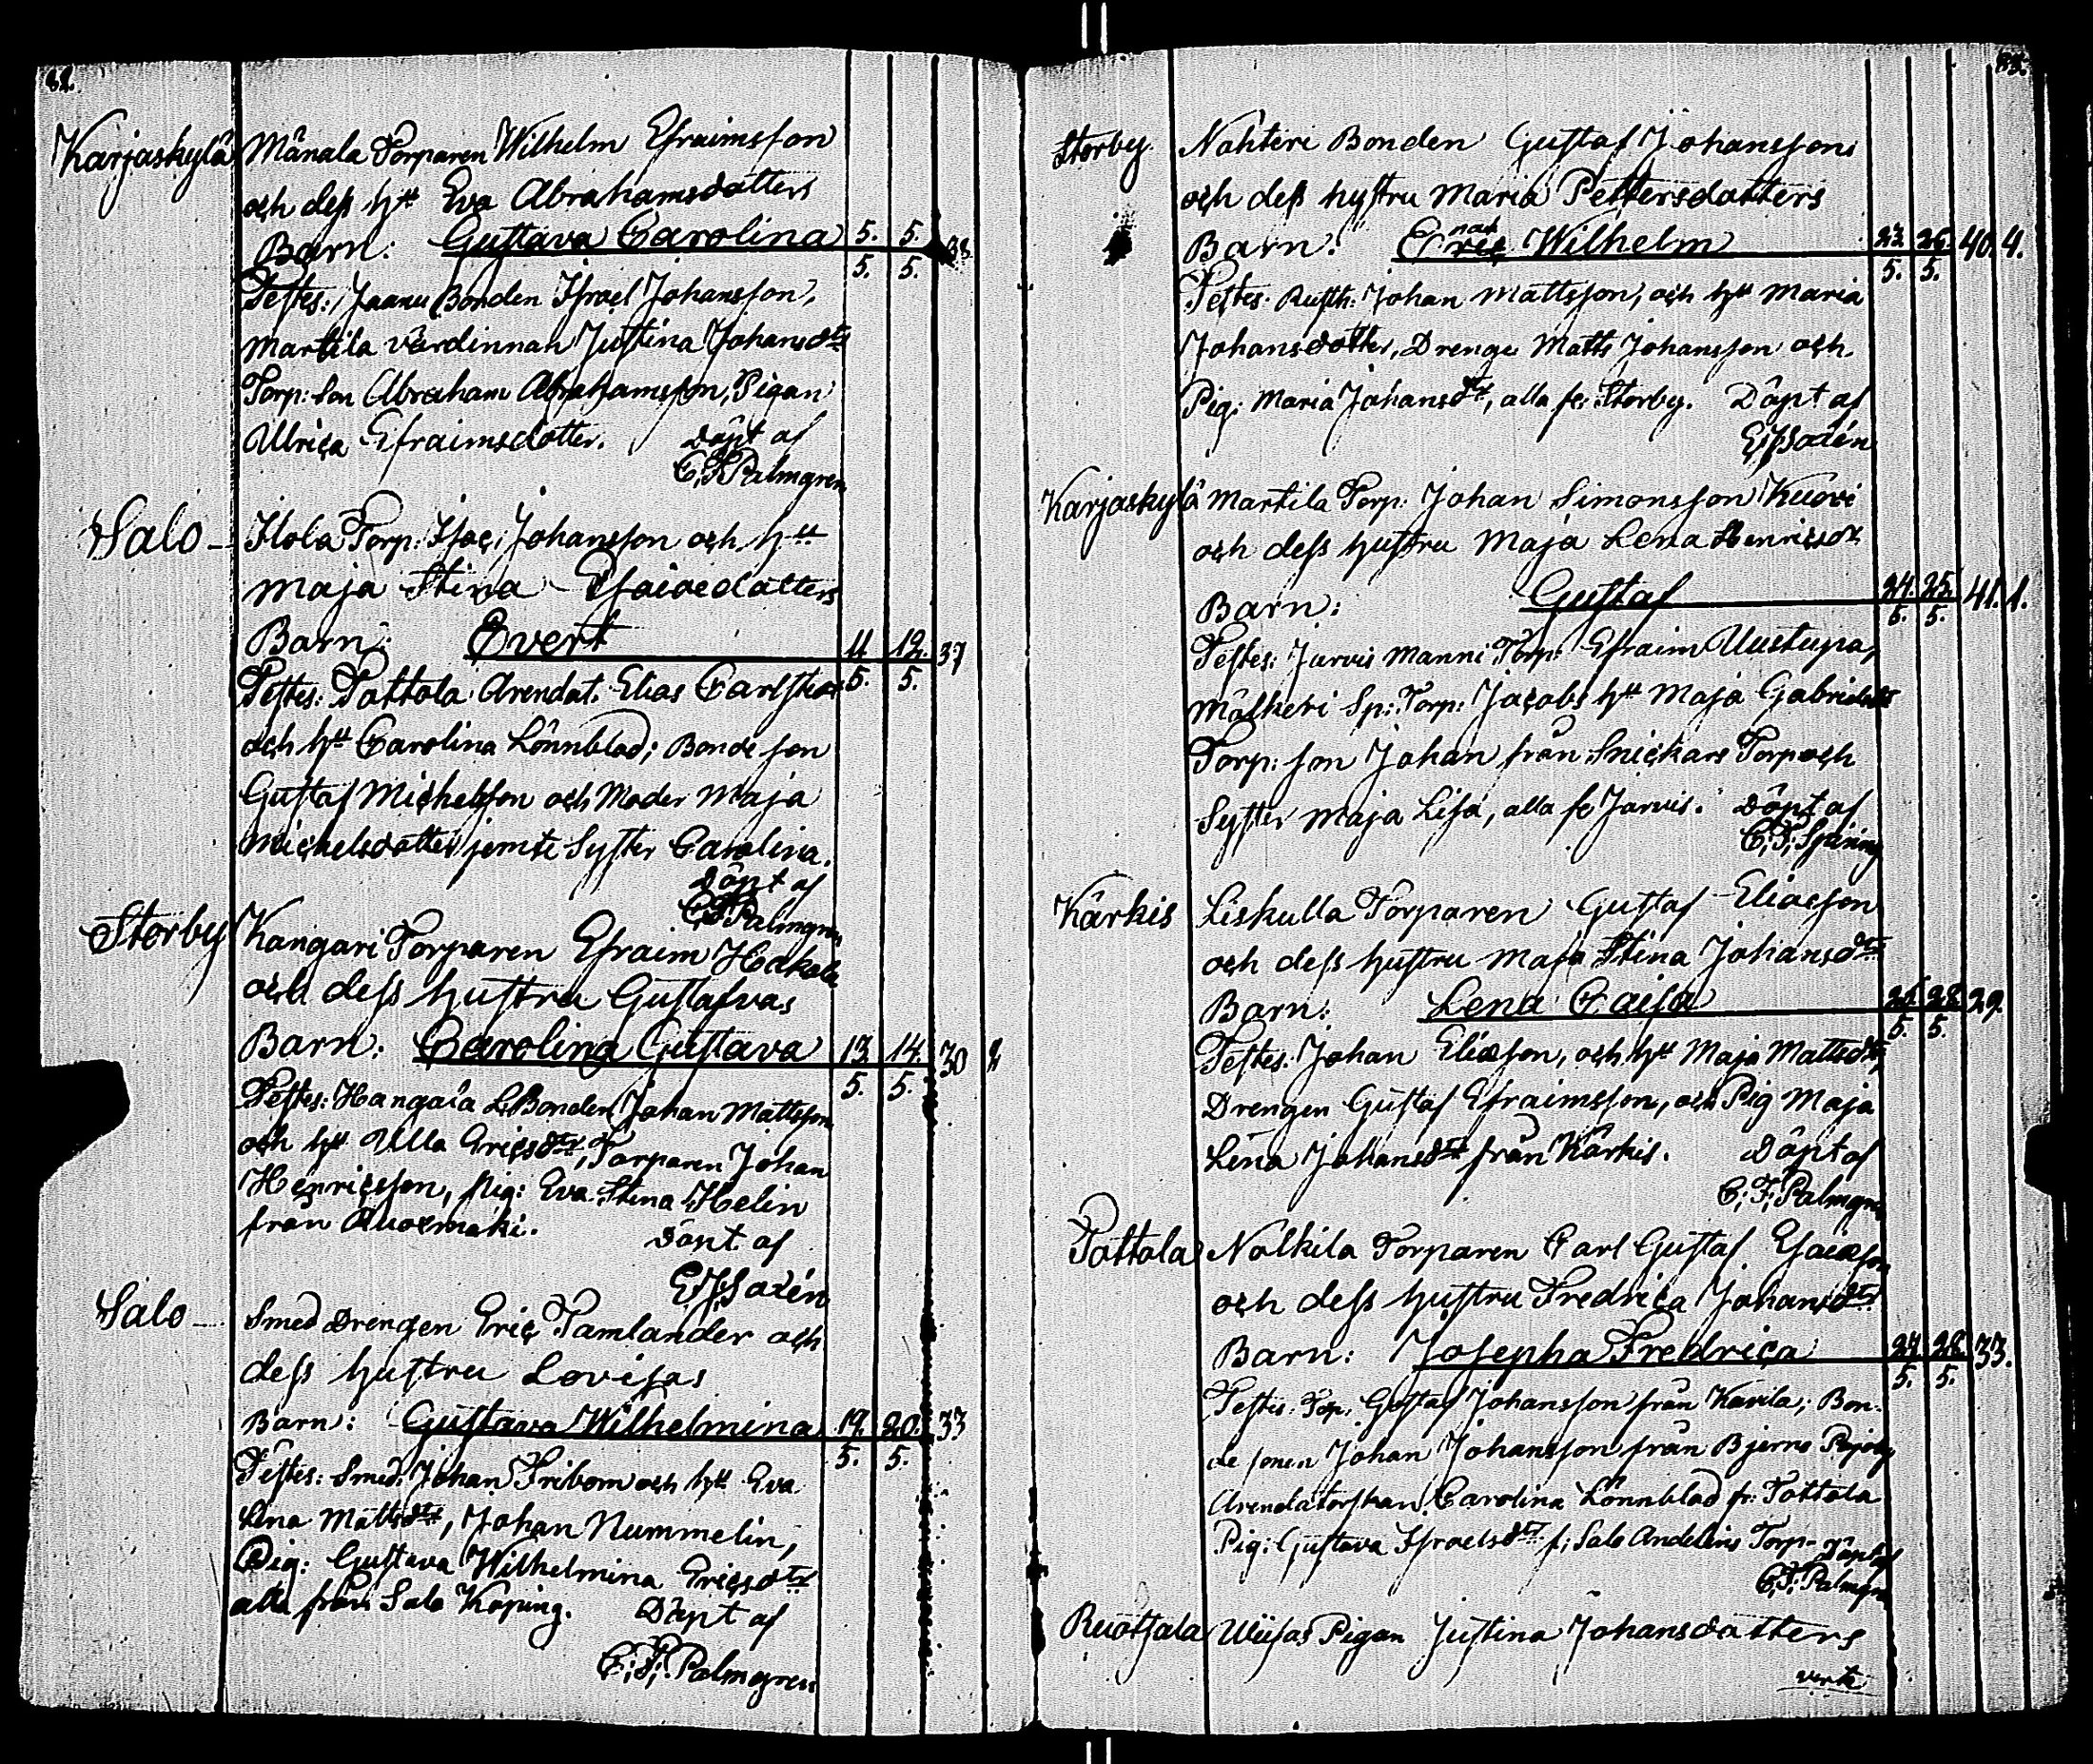 82.
Karjaskylä Mänala Torparen Wilhelm Efraimsson
och dess h:u Eva Abrahamsdotters
Barn: Gustava Carolina 5. 5. 38
5. 5.
Testes: Jaanu Bonden Israel Johansson,
Martila värdinnan Justina Johansdtr
Torp: son Abraham Abrahamsson, Pigan
Ulrica Efraimsdotter. Döpt af
C. F. Palmgren
Salo Ilola Torp: Isac Johansson och h:u
Maja Stina Esaiedotters
Barn: Evert 11 12. 37
5. 5.
Testes: Tottola Arendat. Elias Carlsson
och h:u Carolina Lönnblad; Bonde son
Gustaf Michelsson och Moder Maja
Michelsdotter jemte Syster Carolina.
Döpt af
C. F. Palmgren
Storby Kangari Torparen Efraim Hakala
och dess hustru Gustafvas
Barn: Carolina Gustava 13. 14. 30 2
5. 5.
Testes: Bonden Johan Mattsson
och h:u Ulla Ericsdtr, Torparen Johan
Henricsson, pig: Eva Stina Helin
från Döpt af
Salo Smed Drengen Eric Tamlander och
dess hustru Lovisas
Barn: Gustava Wilhelmina 19. 20. 33
5. 5.
Testes: Smed. Johan Fribom och h:u Eva
Lena Mattsdtr, Johan Nummelin,
Pig: Gustava Wilhelmina Ericsdtr
alla från Salo Köping. Döpt af
C. F. Palmgren
83.
Storby Nahteri Bonden Gustaf Johanssons
och dess hustru Maria Pettersdotters
Barn: Wilhelm 23. 26. 40. 4.
5. 5.
Testes. Rusth: Johan Mattsson, och h:u Maria
Johansdotter, Drenge Matts Johansson och
Pig: Maria Johansdtr, alla fr: Storby. Döpt af
Karjaskylä Martila Torp: Johan Simonsson Kuovi
och dess hustru Maja Lena Henricsdr
Barn: Gustaf 24. 25. 41. 1.
5. 5.
Testes: Jarvis Manni Torp: Efraim Uustupa,
Mälkeri Sp: Torp: Jacobs h:u Maja Gabrielsdtr
Torp: son Johan från Snickars Torp och
Syster Maja Lisa, alla fr Jarvis. Döpt af
Kärkis Liskulla Torparen Gustaf Eliasson
och dess hustru Maja Stina Johansdtr
Barn: Lena Caisa 28. 29.
5. 5.
Testes. Johan Eliasson, och h:u Maja Mattsdtr,
Drengen Gustaf Efraimsson, och Pig Maja
Lena Johansdtr från Kärkis. Döpt af
C. F. Palmgren
Tottola Nolkila Torparen Carl Gustaf Esaiasson
och dess hustru Fredrica Johansdtr
Barn: Josepha Fredrica 24. 28. 33.
5. 5.
Testes. Torp. Gustaf Johansson från Kavila; Bon-
de sonen Johan Johansson från Bjerno
Arendatorskan Carolina Lönnblad fr: Tottola
Pig: Gustava Israelsdtr f: Salo Andelins Torp- Döpt af
C. F. Palmgren
Ruotsala Uusas Pigan Justina Johansdotters
verte